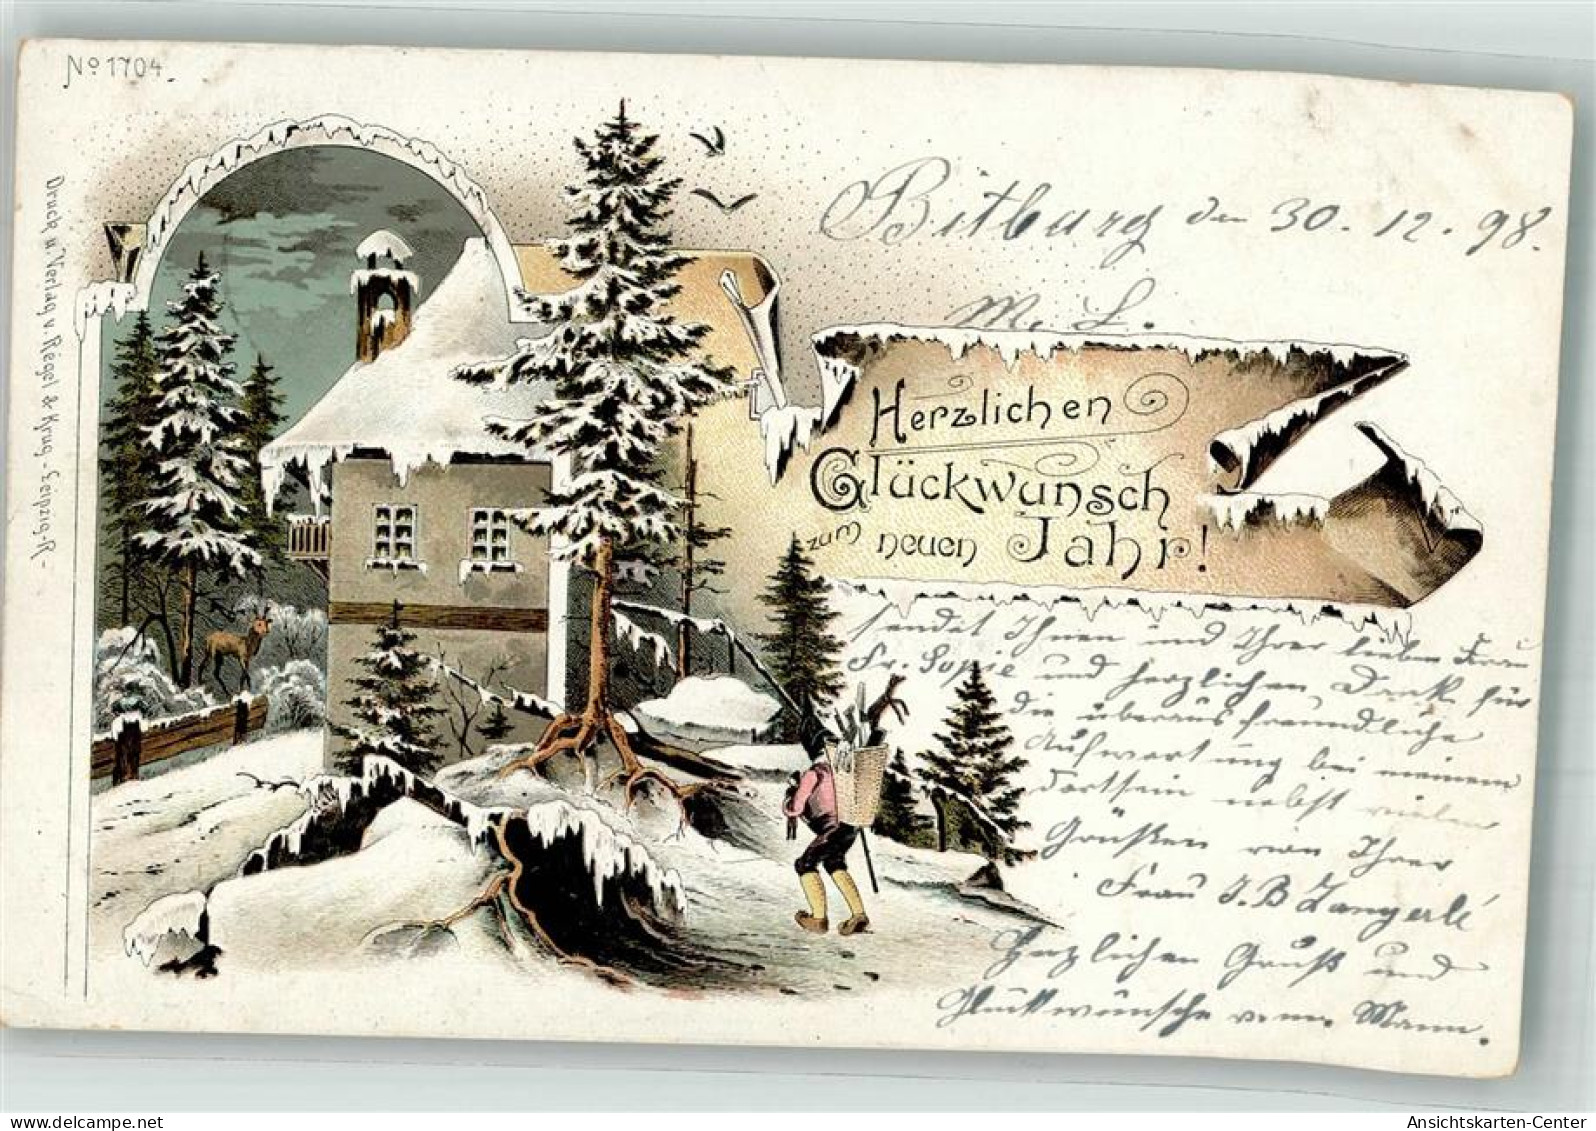 No 1704.
Druck u. Verlag v. Regel & Krug - Leipzig-R -
Bitburg den 30. 12. 98.
M. L.
Herzlichen
Glückwunsch
zum neuen Jahr!
sendet Ihnen und Ihrer lieben Frau
Fr. Sopie und herzlichen Dank für
die überaus freundliche
Aufwartung bei meinem
Dortsein nebst vielen
Grüßen von Ihrer
Frau J. B. Zangerlé
Herzlichen Gruß und
Glückwünsche vom Mann.
delcampe.net
Ansichtskarten-Center